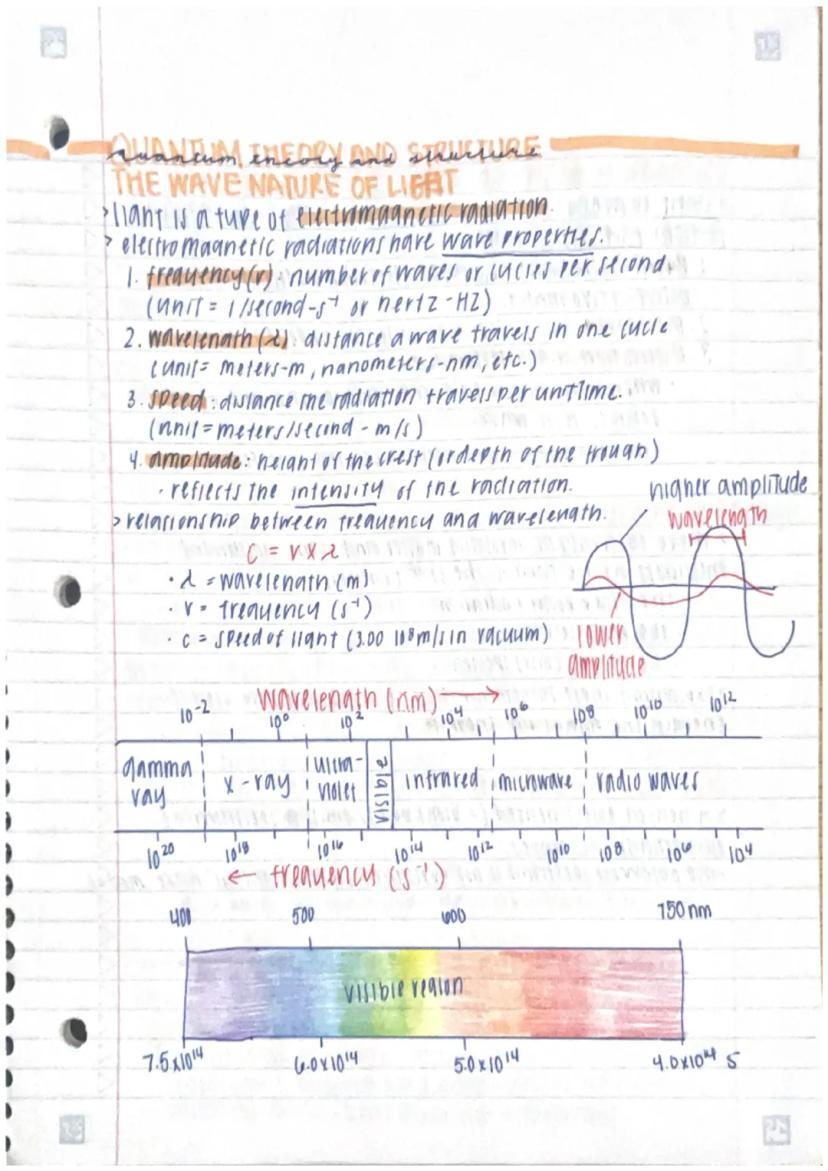 QUANTUM THEORY AND STRUCTURE
quantum theory and structure
THE WAVE NATURE OF LIGHT
> light is a type of electromagnetic radiation.
> electromagnetic radiations have wave properties.
1. frequency (ν): number of waves or cycles per second
(unit = 1/second-s⁻¹ or hertz-HZ)
2. wavelength (λ): distance a wave travels in one cycle
(unit = meters-m, nanometers-nm, etc.)
3. speed: distance the radiation travels per unit time.
(unit = meters/second - m/s)
4. amplitude: height of the crest (or depth of the trough)
· reflects the intensity of the radiation.
higher amplitude
> relationship between frequency and wavelength.
wavelength
c = ν x λ
· λ = wavelength (m)
· ν = frequency (s⁻¹)
· c = speed of light (3.00 10⁸ m/s in vacuum)
lower
amplitude
wavelength (nm) →
10⁻² 10⁰ 10² 10⁴ 10⁶ 10⁸ 10¹⁰ 10¹²
gamma ray x-ray ultra-violet visible infrared microwave radio waves
10²⁰ 10¹⁸ 10¹⁶ 10¹⁴ 10¹² 10¹⁰ 10⁸ 10⁶ 10⁴
← frequency (s⁻¹)
400 500 600 750 nm
visible region
7.5x10¹⁴ 6.0x10¹⁴ 5.0x10¹⁴ 4.0x10¹⁴ S